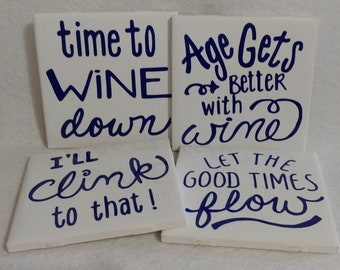 time to
WINE
down
Age Gets
Better
with
wine
I'LL
Clink
to that!
LET THE
GOOD TIMES
flow